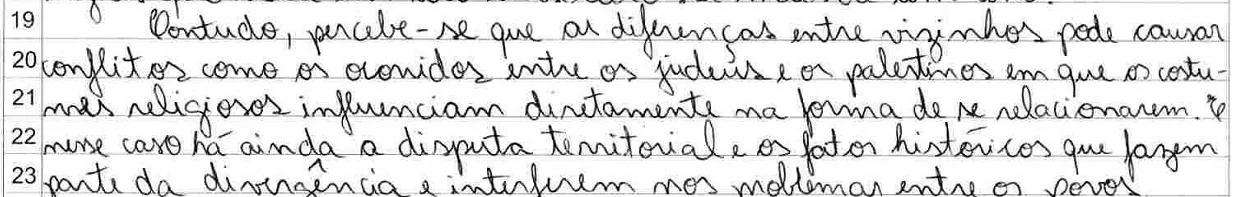 19 Contudo, percebe-se que as diferenças entre vizinhos pode causar
20 conflitos como os ocorridos entre os judeus e os palestinos em que os costu-
21 mes religiosos influenciam diretamente na forma de se relacionarem. E
22 nesse caso há ainda a disputa territorial e os fatos históricos que fazem
23 parte da divergência e interferem nos problemas entre os povos